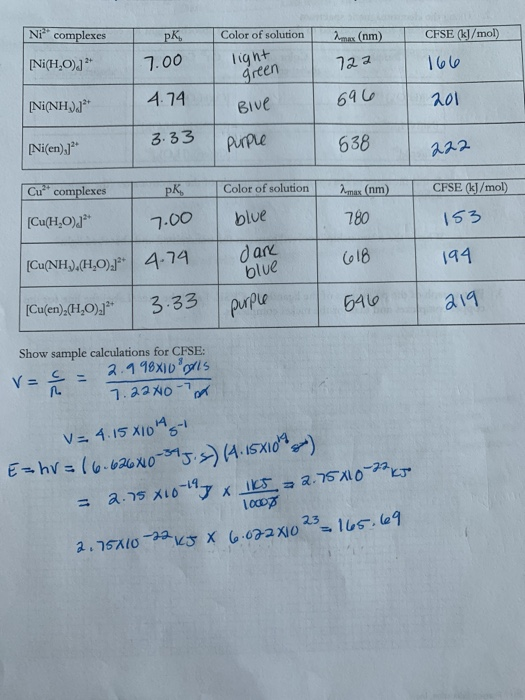 Ni²⁺ complexes pK_b Color of solution λ_max (nm) CFSE (kJ/mol)
[Ni(H₂O)₆]²⁺ 7.00 light green 722 166
[Ni(NH₃)₆]²⁺ 4.74 Blue 596 201
[Ni(en)₃]²⁺ 3.33 purple 538 222
Cu²⁺ complexes pK_b Color of solution λ_max (nm) CFSE (kJ/mol)
[Cu(H₂O)₆]²⁺ 7.00 blue 780 153
[Cu(NH₃)₄(H₂O)₂]²⁺ 4.74 dark blue 618 194
[Cu(en)₂(H₂O)₂]²⁺ 3.33 purple 546 219
Show sample calculations for CFSE:
V = c/λ = 2.998X10⁸ m/s / 7.22X10⁻⁷ m
V = 4.15 X10¹⁴ s⁻¹
E = hV = (6.626X10⁻³⁴ J·s) (4.15X10¹⁴ s⁻¹)
= 2.75 X10⁻¹⁹ J X 1KJ/1000J = 2.75 X10⁻²² KJ
2.75X10⁻²² KJ X 6.022X10²³ = 165.69